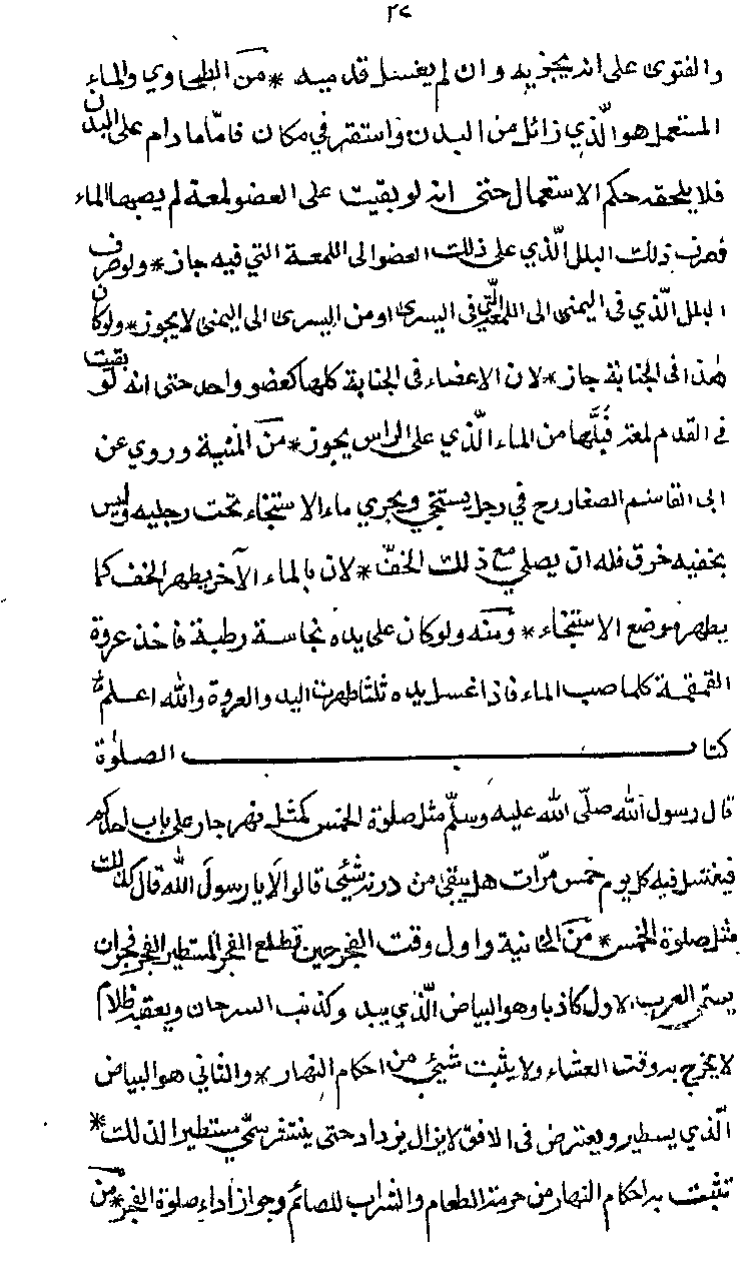 ٢٧
والفتوى على انه يجزيه وان لم يغسل قدميه * من الطحاوي والماء
المستعمل هو الّذي زائل من البدن واستقر في مكان فامّا مادام على البدن
فلا يلحقه حكم الاستعمال حتى انه لو بقيت على العضو لمعة لم يصبها الماء
فصرف ذلك البلل الّذي على ذلك العضو الى اللمعة التي فيه جاز * ولو صرف
البلل الّذي في اليمنى الى اللمعة الّتي في اليسرى او من اليسرى الى اليمنى لا يجوز * ولو كان
هذا في الجنابة جاز * لان الاعضاء في الجنابة كلها كعضو واحد حتى انه لو بقيت
في القدم لمعة فبلّها من الماء الّذي على الراس يجوز * من المنية وروي عن
ابى القاسم الصفار رح في رجل يستنجي ويجري ماء الاستنجاء تحت رجليه وليس
بخفيه خرق فله ان يصلي مع ذلك الخفّ * لان بالماء الآخر يطهر الخف كما
يطهر موضع الاستنجاء * ومنه ولو كان على يده نجاسة رطبة فاخذ عروة
القمقمة كلما صب الماء فاذا غسل يده ثلثا طهرت اليد والعروة والله اعلم
كتاب الصلوة
قال رسول الله صلّى الله عليه وسلّم مثل صلوة الخمس كمثل نهر جار على باب احدكم
فيغتسل فيه كل يوم خمس مرّات هل يبقى من درنه شئي قالوا لا يا رسول الله قال كذلك
مثل صلوة الخمس * من الخانية واول وقت الفجر حين تطلع الفجر المستطير الفجر فجران
يسمى العرب الاول كاذبا وهو البياض الّذي يبدو كذنب السرحان ويعقبه ظلام
لا يخرج به وقت العشاء ولا يثبت شئي من احكام النهار * والثاني هو البياض
الّذي يسطير ويعترض في الافق لا يزال يزداد حتى ينتشر سمّي مستطيرا لذلك *
تثبت به احكام النهار من حرمة الطعام والشراب للصائم وجواز اداء صلوة الفجر * من